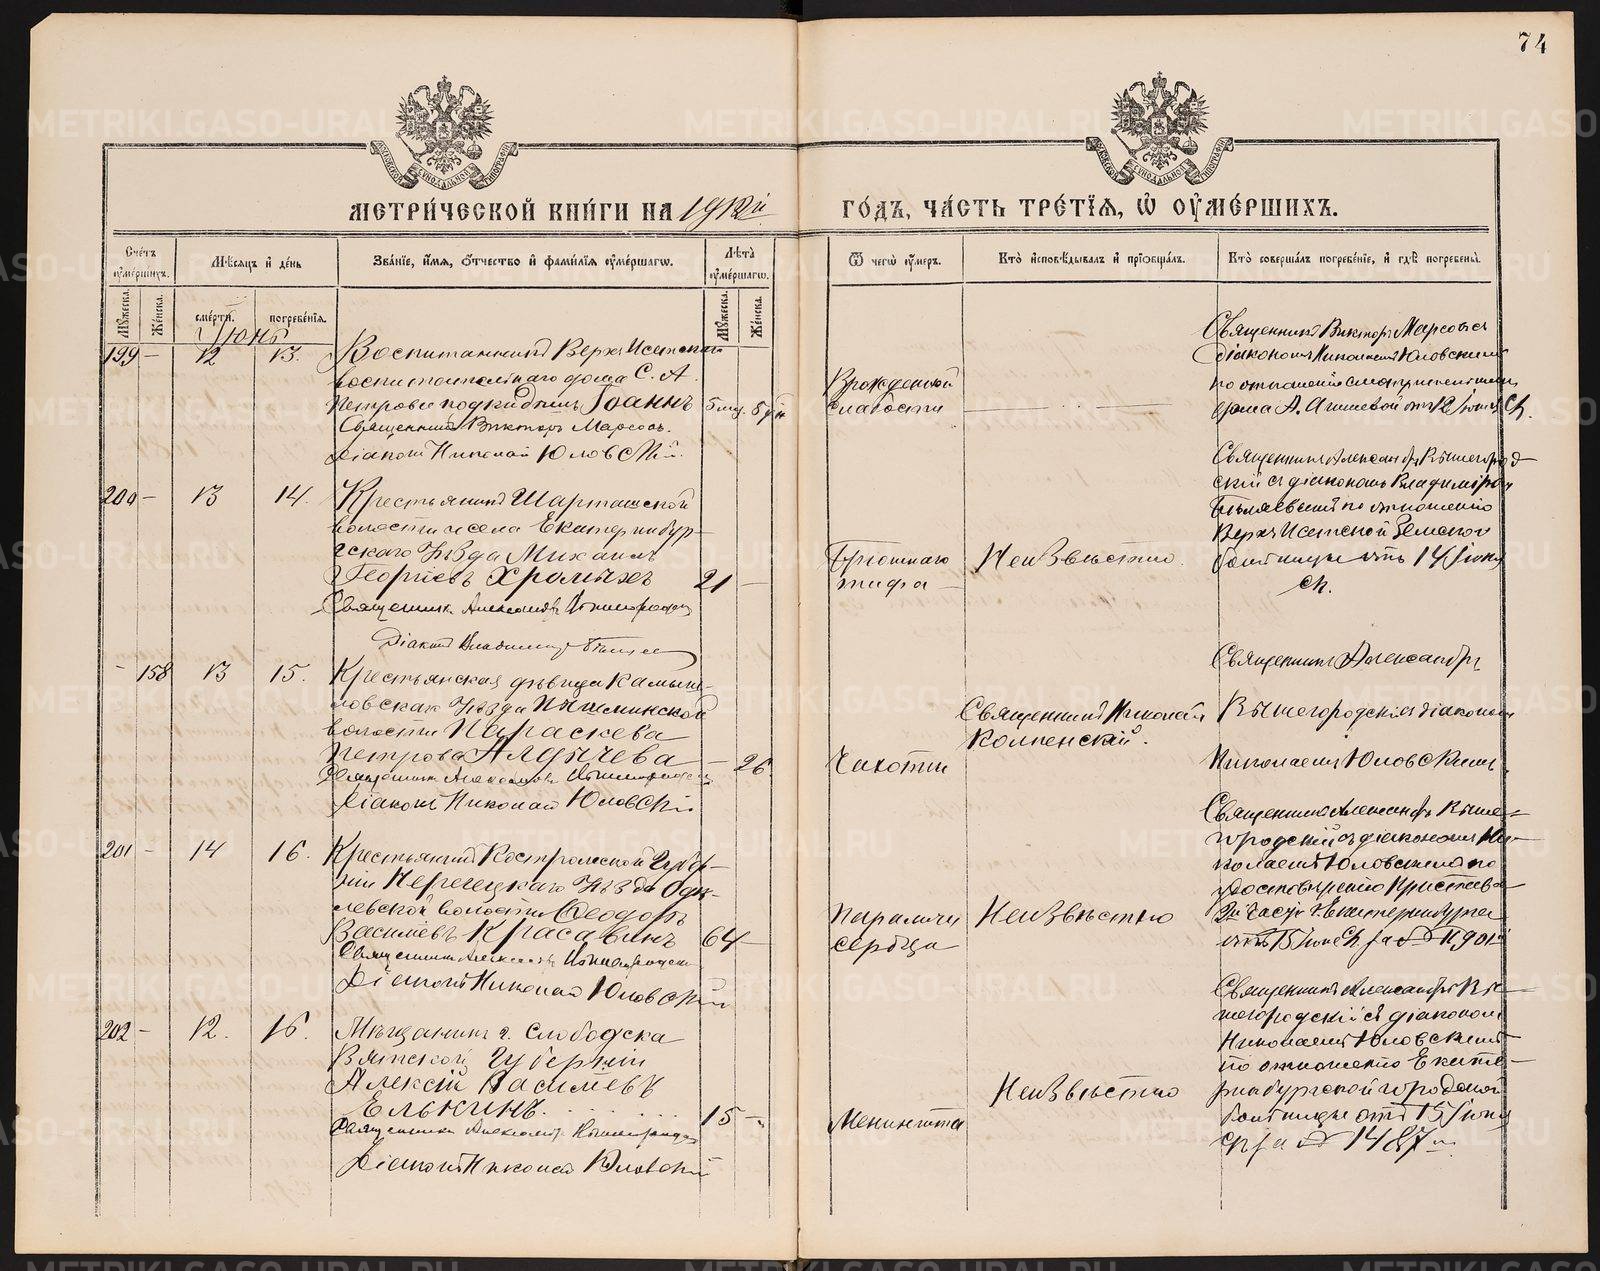 74
МЕТРИ́ЧЕСКОЙ КНИ́ГИ НА 1912й ГО́ДЪ, ЧА́СТЬ ТРЕ́ТЇѦ, Ѿ ОУ҆МЕ́РШИХЪ.
Сче́тъ оу҆ме́ршихъ.
Мѣ́сѧцъ и҆ де́нь
Зва́нїе, и҆́мѧ, ѻ҆́тчество и҆ фами́лїѧ оу҆ме́ршагѡ.
Лѣ́та оу҆ме́ршагѡ.
Ѿ чегѡ̀ оу҆́меръ.
Кто̀ и҆сповѣ́дывалъ и҆ прїѡбща́лъ.
Кто̀ соверша́лъ погребе́нїе, и҆ гдѣ̀ погребены̀.
Мꙋ́жеска. Же́нска. сме́рти. погребе́нїѧ. Мꙋ́жеска. Же́нска.
Іюнь
199 – 12 13.
Воспитанникъ Верхъ Исетскаго
воспитательнаго дома С. А.
Петровъ подкидышъ Іоаннъ
5 мц. 5 дн
Священникъ Викторъ Марсовъ.
Діаконъ Николай Юловскій.
Врожденной
слабости
Священникъ Викторъ Марсовъ съ
діакономъ Николаемъ Юловскимъ
по отношенію смотрительницы
дома А. Агишевой отъ 12 Іюня
200 – 13 14.
Крестьянинъ Шарташской
волости и села Екатеринбур-
гскаго Уѣзда Михаилъ
Георгіевъ Храмыхъ
21 –
Священникъ Александръ Вышегородскій
Діаконъ Владимиръ Бѣляевъ
Брюшнаго
тифа
Неизвѣстно.
Священникъ Александръ Вышегород
скій съ діакономъ Владиміромъ
Бѣляевымъ по отношенію
Верхъ Исетской Земской
больницы отъ 14 Іюня
– 158 13 15.
Крестьянская дѣвица Камыш-
ловскаго Уѣзда
волости Параскева
Петрова Алдычева
– 26.
Священникъ Александръ Вышегородскій
Діаконъ Николай Юловскій
Чахотки
Священникъ Николай
Священникъ Александръ
Вышегородскій съ діакономъ
Николаемъ Юловскимъ.
201 – 14 16.
Крестьянинъ Костромской Губер-
ніи Нерехтскаго Уѣзда
волости Ѳеодоръ
Васильевъ Красавинъ
64 –
Священникъ Александръ Вышегородскій
Діаконъ Николай Юловскій
Параличъ
сердца
Неизвѣстно
Священникъ Александръ Выше-
городскій съ діакономъ Ни-
колаемъ Юловскимъ по
удостовѣренію Пристава
2й части г. Екатеринбурга
отъ 15 Іюня за №
202 – 12. 16.
Мѣщанинъ г. Слободска
Вятской Губерніи
Алексій Васильевъ
Елькинъ.
15 –
Священникъ Александръ Вышегородскій
Діаконъ Николай Юловскій
Менингита
Неизвѣстно
Священникъ Александръ Вы-
шегородскій съ діакономъ
Николаемъ Юловскимъ
по отношенію Екате-
ринбургской городской
больницы отъ 15 Іюня
за № 1487
METRIKI.GASO-URAL.RU